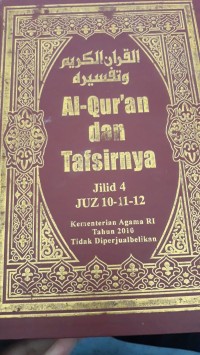 القرآن الكريم
وتفسيره
Al-Qur'an
dan
Tafsirnya
Jilid 4
JUZ 10-11-12
Kementerian Agama RI
Tahun 2010
Tidak Diperjualbelikan